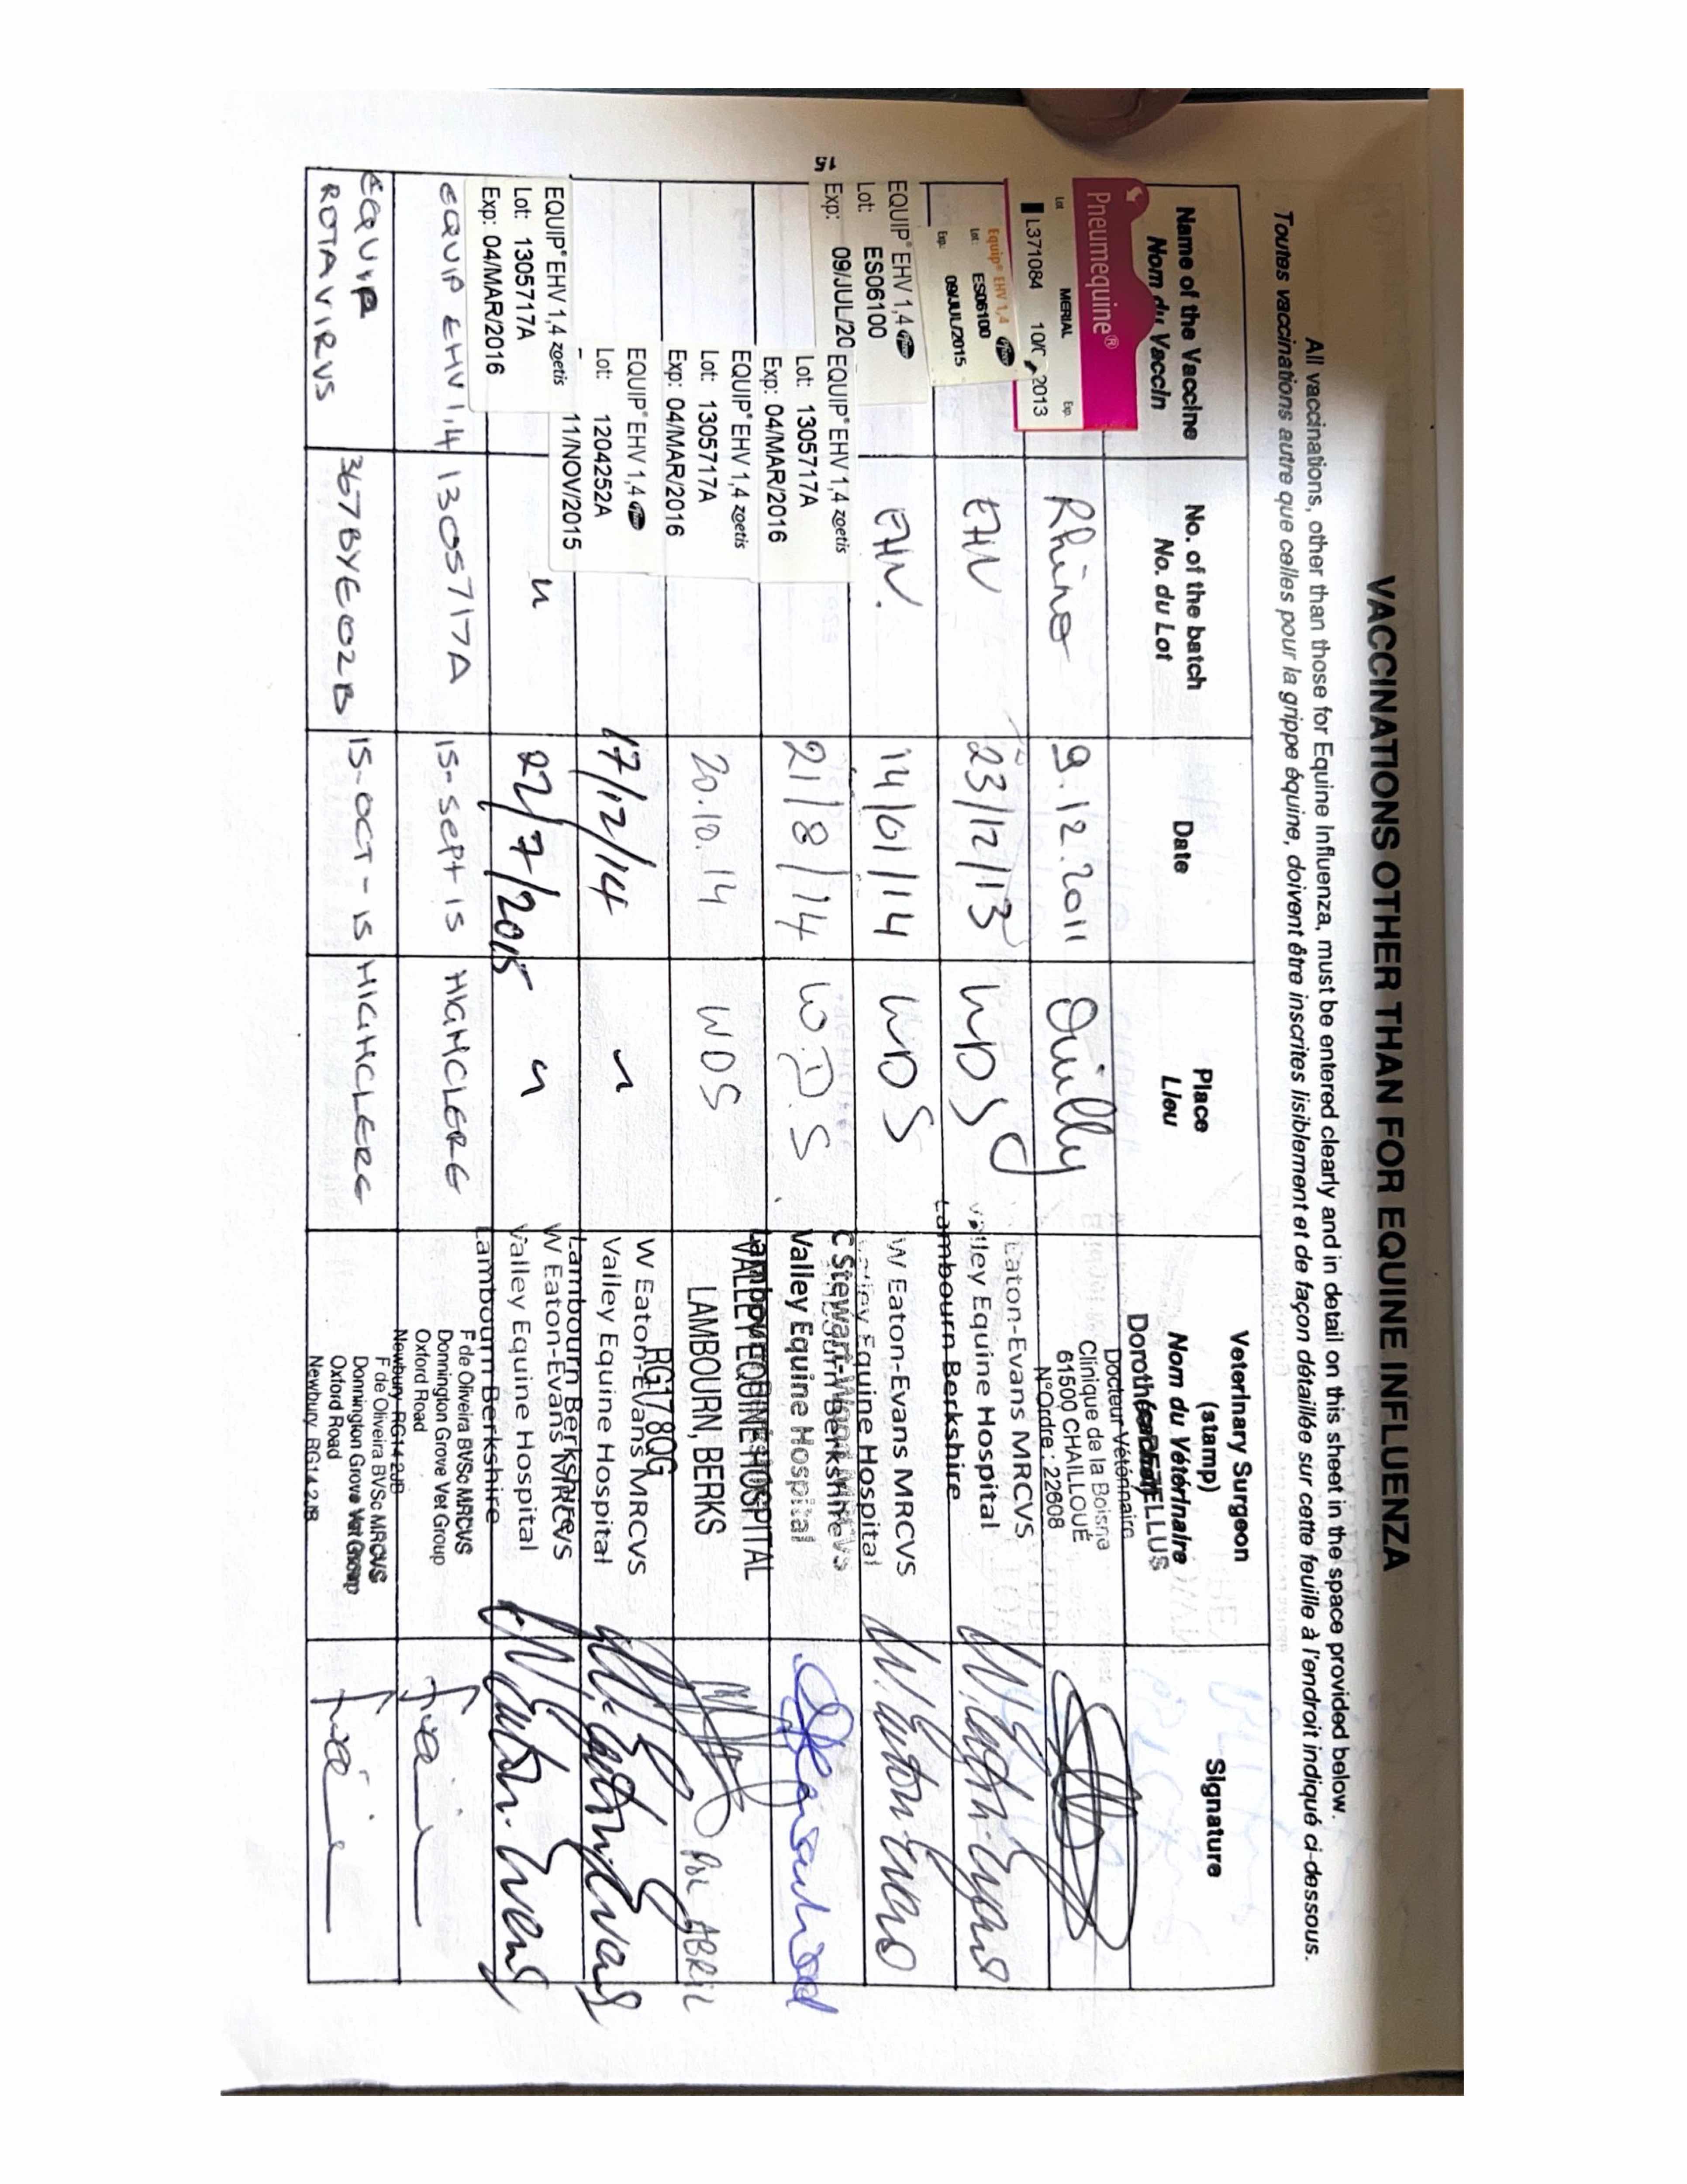 VACCINATIONS OTHER THAN FOR EQUINE INFLUENZA
All vaccinations, other than those for Equine Influenza, must be entered clearly and in detail on this sheet in the space provided below.
Toutes vaccinations autre que celles pour la grippe équine, doivent être inscrites lisiblement et de façon détaillée sur cette feuille à l'endroit indiqué ci-dessous.
Name of the Vaccine
Nom du Vaccin
No. of the batch
No. du Lot
Date
Place
Lieu
Veterinary Surgeon
(stamp)
Nom du Vétérinaire
Signature
Pneumequine®
Lot MERIAL Exp.
L371084 2013
Rhino
9.12.2011
Docteur Vétérinaire
Clinique de la Boisne
61500 CHAILLOUÉ
N°Ordre : 22608
Equip® EHV 1,4 Pfizer
Lot: ES06100
Exp: 09/JUL/2015
EHV
23/12/13
WDS
Eaton-Evans MRCVS
Valley Equine Hospital
Lambourn Berkshire
EQUIP® EHV 1,4 Pfizer
Lot: ES06100
Exp: 09/JUL/20
15
EHV.
14/01/14
WDS
W Eaton-Evans MRCVS
Valley Equine Hospital
EQUIP® EHV 1,4 zoetis
Lot: 1305717A
Exp: 04/MAR/2016
21/8/14
W.D.S
Valley Equine Hospital
EQUIP® EHV 1,4 zoetis
Lot: 1305717A
Exp: 04/MAR/2016
20.10.14
WDS
VALLEY EQUINE HOSPITAL
LAMBOURN, BERKS
RG17 8QG
POL ABRIL
EQUIP® EHV 1,4 Pfizer
Lot: 1204252A
11/NOV/2015
17/12/14
W Eaton-Evans MRCVS
Valley Equine Hospital
Lambourn Berkshire
EQUIP® EHV 1,4 zoetis
Lot: 1305717A
Exp: 04/MAR/2016
22/7/2015
W Eaton-Evans MRCVS
Valley Equine Hospital
Lambourn Berkshire
EQUIP EHV 1,4
1305717A
15-SEPT 15
HIGHCLERE
F de Oliveira BVSc MRCVS
Donnington Grove Vet Group
Oxford Road
Newbury RG14 2JB
EQUIP
ROTAVIRUS
367BYE02B
15-OCT-15
HIGHCLERE
F de Oliveira BVSc MRCVS
Donnington Grove Vet Group
Oxford Road
Newbury RG14 2JB